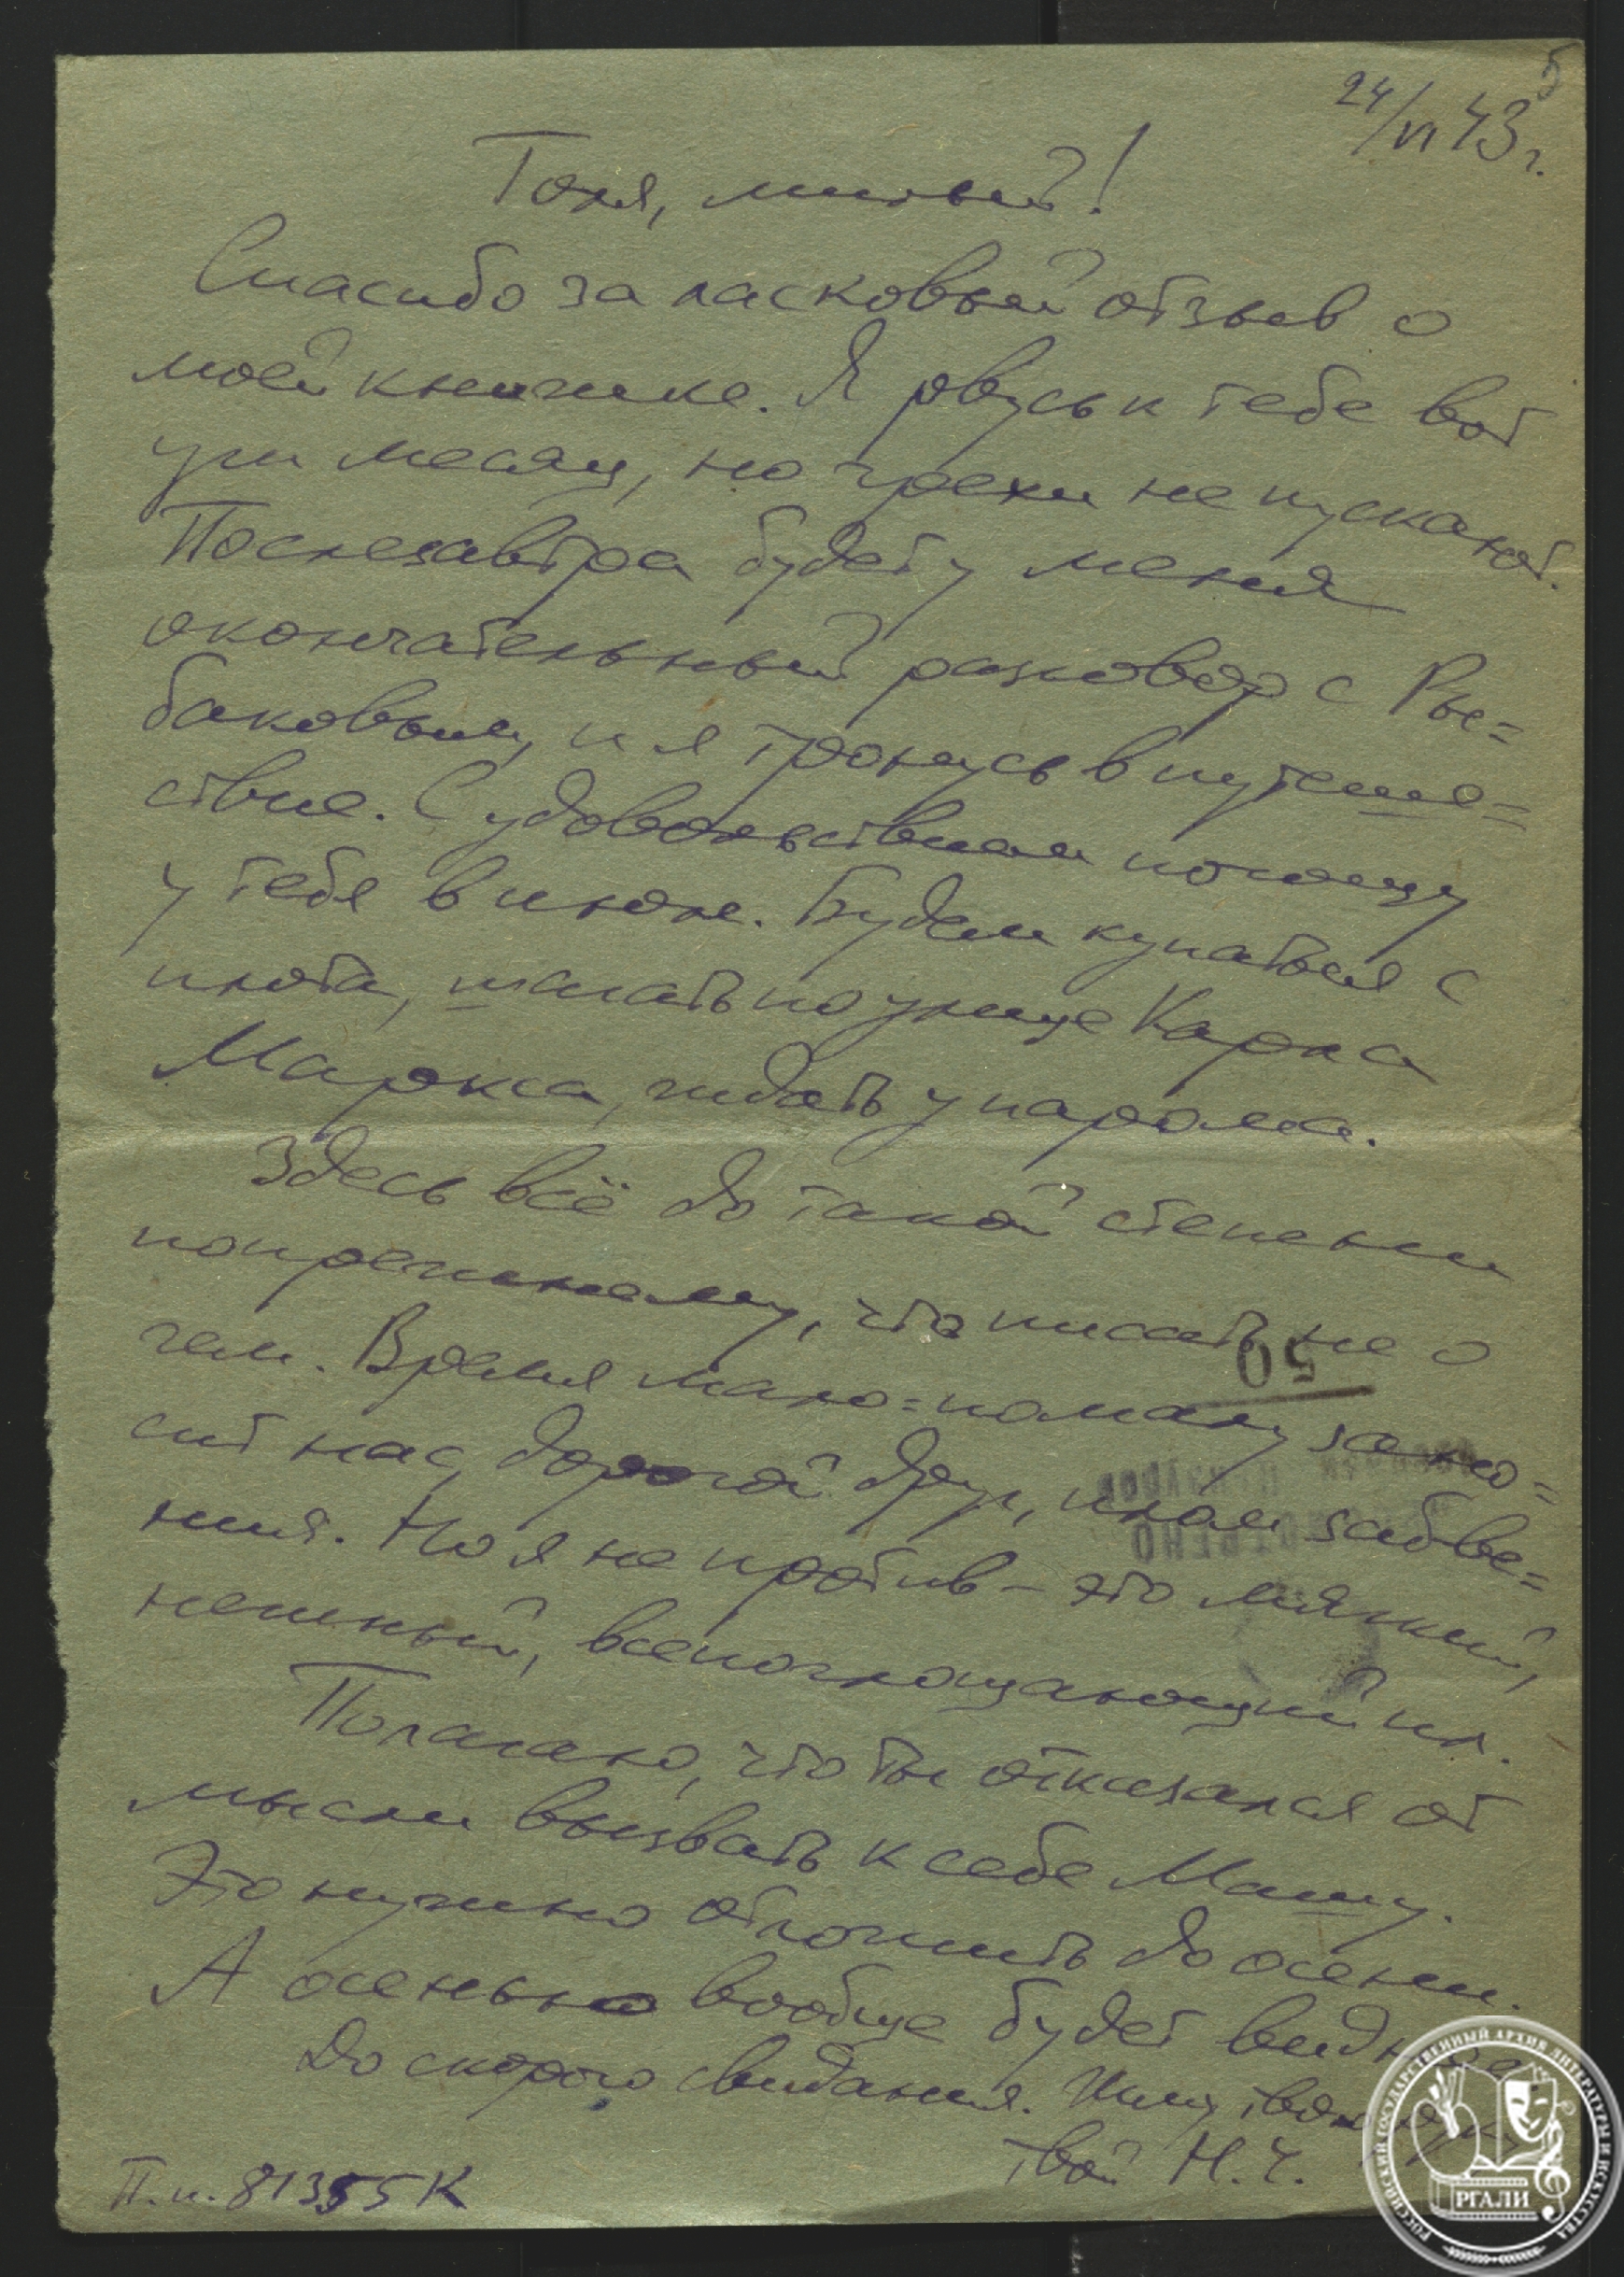 5
24/VI 43 г.
Толя, милый!
Спасибо за ласковый отзыв о
моей книжке. Я рвусь к тебе вот
уж месяц, но грехи не пускают.
Послезавтра будет у меня
окончательный разговор с Ры=
баковым, и я тронусь в путеше=
ствие. С удовольствием погощу
у тебя в июле. Будем купаться с
плота, шагать по улице Карла
Маркса, ждать у парома.
Здесь всё до такой степени
попрежнему, что писать не о
чем. Время мало=помалу зано=
сит нас, дорогой друг, илом забве=
ния. Но я не против – это мягкий,
нежный, всепоглощающий ил.
Полагаю, что ты отказался от
мысли вызвать к себе Машу.
Это нужно отложить до осени.
А осенью вообще будет виднее
До скорого свидания. Жму твою руку
твой Н.Ч.
П.п. 81355К
50
РОССИЙСКИЙ ГОСУДАРСТВЕННЫЙ АРХИВ ЛИТЕРАТУРЫ И ИСКУССТВА
РГАЛИ